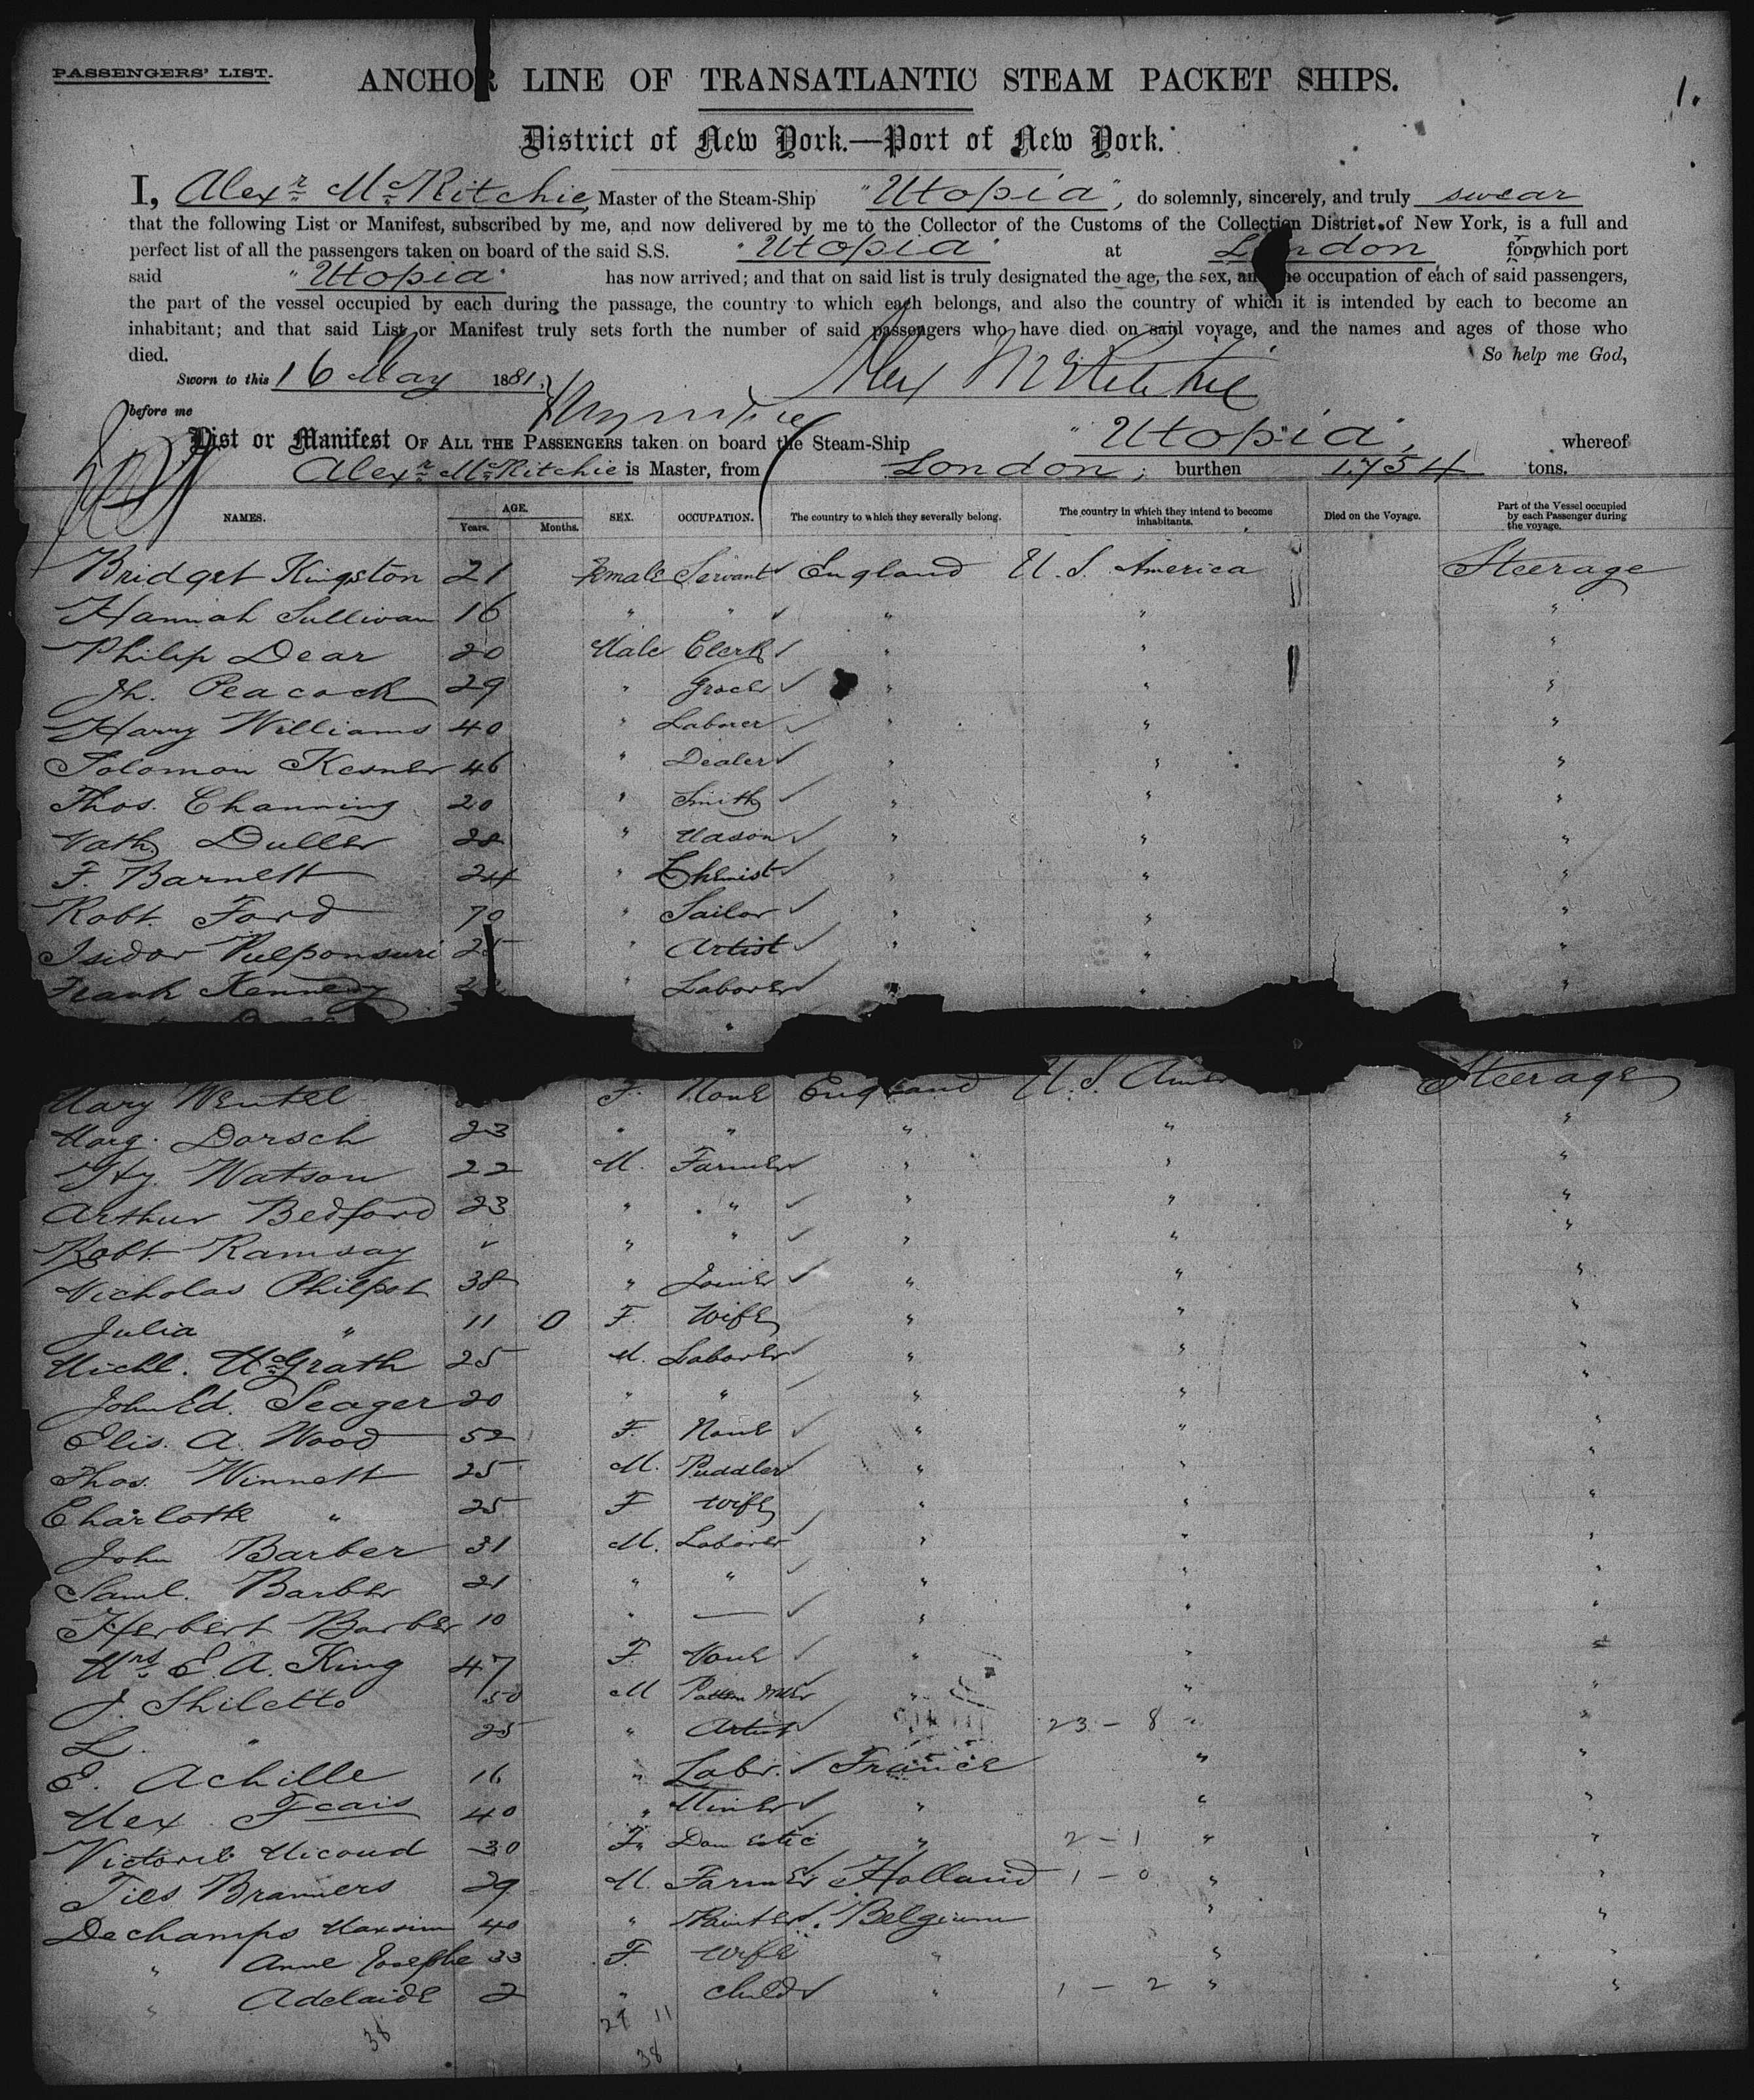 PASSENGERS' LIST.
1.
ANCHOR LINE OF TRANSATLANTIC STEAM PACKET SHIPS.
District of New York.—Port of New York.
I, Alexr McRitchie, Master of the Steam-Ship "Utopia", do solemnly, sincerely, and truly swear
that the following List or Manifest, subscribed by me, and now delivered by me to the Collector of the Customs of the Collection District of New York, is a full and
perfect list of all the passengers taken on board of the said S.S. "Utopia" at London from which port
said "Utopia" has now arrived; and that on said list is truly designated the age, the sex, and the occupation of each of said passengers,
the part of the vessel occupied by each during the passage, the country to which each belongs, and also the country of which it is intended by each to become an
inhabitant; and that said List or Manifest truly sets forth the number of said passengers who have died on said voyage, and the names and ages of those who
died. So help me God,
Sworn to this 16 May 1881. Alex McRitchie
before me
List or Manifest OF ALL THE PASSENGERS taken on board the Steam-Ship "Utopia", whereof
Alexr McRitchie is Master, from London, burthen 1,754 tons.
NAMES. AGE. Years. Months. SEX. OCCUPATION. The country to which they severally belong. The country in which they intend to become inhabitants. Died on the Voyage. Part of the Vessel occupied by each Passenger during the voyage.
Bridget Kingston 21 Female Servant England U. S. America Steerage
Hannah Sullivan 16 " " " " "
Philip Dear 20 Male Clerk " " "
Jh. Peacock 29 " Grocer " " "
Harry Williams 40 " Laborer " "
Solomon Kesner 46 " Dealer " " "
Thos. Channing 20 " Smith " " "
Nath Duller 28 " Mason " " "
F. Barnett 24 " Chemist " " "
Robt. Ford 70 " Sailor " " "
Isidor 25 " Artist " " "
Frank Kennedy " Laborer " " "
Mary Wentel F. None England U. S. Amer Steerage
Marg. Dorsch 23 " " " " "
Hy. Watson 22 M. Farmer " " "
Arthur Bedford 23 " " " " "
Robt. Ramsay " " " " " "
Nicholas Philpot 38 " Joiner " " "
Julia " 11 0 F. Wife " " "
Michl. McGrath 25 M. Laborer " " "
John Ed. Seager 20 " " " " "
Elis. A. Wood 52 F. None " " "
Thos. Winnett 25 M. Puddler " " "
Charlotte " 25 F Wife " " "
John Barber 31 M. Laborer " " "
Saml. Barber 21 " " " " "
Herbert Barber 10 " — " " "
Mrs E. A. King 47 F. None " " "
J. Shiletto 50 M Pattern Mkr " " "
L. " 25 " Artist 23 - 8 " "
E. Achille 16 " Labr. France " "
Alex 40 " Miner " " "
Victorie Micoud 30 F. Domestic " 2 - 1 " "
Ties Bramers 29 M. Farmer Holland 1 - 0 " "
Dechamps Maxim 40 " Painter Belgium " "
" Anne Josephe 33 F. Wife " " "
" Adelaide 2 " Child " 1 - 2 " "
38 27 11
38